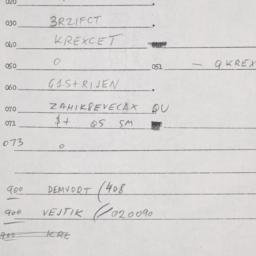 020
030 3RZIFCT
040 KREXCET
050 0 051 — QKREX
060 G1STRIJEN
070 ZAHIKBEVECAX QU
071 $+ QS SM
073 0
900 DEMVORT (408
900 VEJTIK (/020090